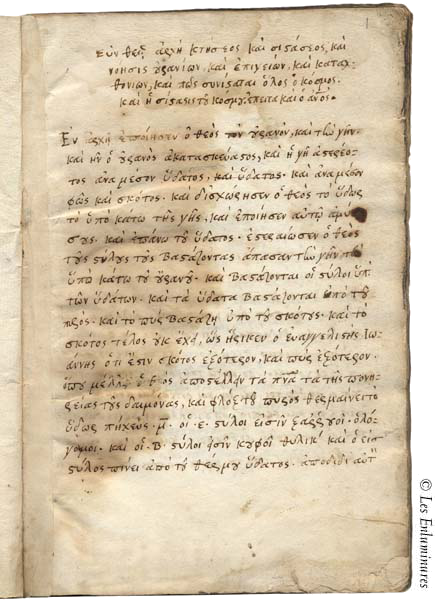 1
Σὺν θεῷ ἀρχὴ κτήσεος καὶ συστάσεος, καὶ
νοησις οὐρανίων, καὶ ἐπιγείων, καὶ καταχ
θονίων, καὶ πῶς συνίσταται ὁ λος ὁ κόσμος.
καὶ ἡ σύστασις τοῦ κόσμου, ἔπειτα καὶ ὁ ἄνος.
Ἐν ἀρχῆ ἐποίησεν ὁ θεὸς τὸν οὐρανον, καὶ τὴν γῆν.
καὶ ἦν ὁ οὐρανὸς ἀκατασκεύαστος, καὶ ἡ γῆ ἀστερέο
τος ἀνα μέσον ὕδατος, καὶ ὕδατος. καὶ ἀνα μέσον
φῶς καὶ σκότος. καὶ διεχώρησεν ὁ θεὸς τὸ ὕδωρ
τὸ ὑπὸ κάτω τῆς γῆς, καὶ ἐποίησεν αὐτὼ ἀβύ
σους. καὶ ἐπάνω τοῦ ὕδατος. ἐστερέωσεν ὁ θεὸς
τοὺς στύλους τοὺς βαστάζοντας ἅπασαν τὴν γῆν
ὑπὸ κάτω τοῦ οὐρανοῦ. καὶ βαστάζονται οἱ στύλοι ὑπὸ
τῶν ὑδάτων. καὶ τὰ ὕδατα βαστάζονται ὑπὸ τοῦ
πυρός. καὶ τὸ πῦρ βαστάζη ὑπὸ τοῦ σκότους. καὶ τὸ
σκότος τέλος οὐκ ἔχει, ὡς ἤρικεν ὁ εὐαγγελιστὴς Ἰω
άννης ὅτι ἔστιν σκότος ἐξότερον, καὶ πῦρ ἐξότερον.
ὅπου μέλλει ὁ θεὸς ἀποστέλλην τὰ πνα τὰ τῆς πονη
ρείας τοὺς δαιμόνας, καὶ φλὸξ τοῦ πυρὸς θερμαίνει τὸ
ὕδωρ πήχεως. μ. οἱ. ε. στύλοι εἰσὶν
γομοι. καὶ οἱ. β. στύλοι ἡσὶν κυφοὶ καὶ ὁ εἷς
στύλος πίνει ἀπὸ τοῦ θερμοῦ ὕδατος. ἀποδίδι αὐτ
© Les Enluminures